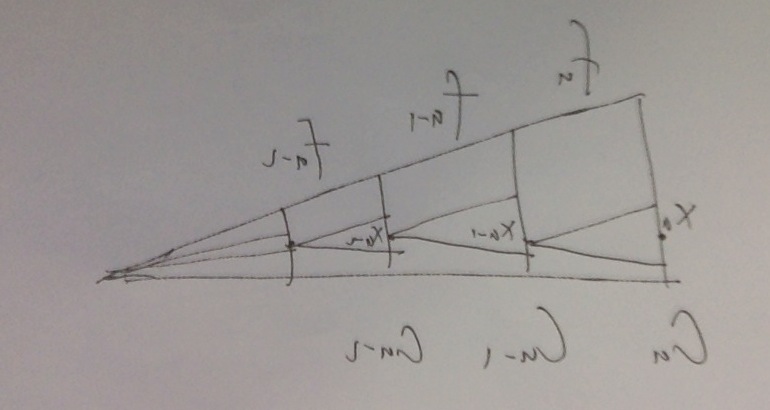 fₙ
fₙ₋₁
fₙ₋₂
x
xₙ₋₁
xₙ₋₂
Cₙ
Cₙ₋₁
Cₙ₋₂